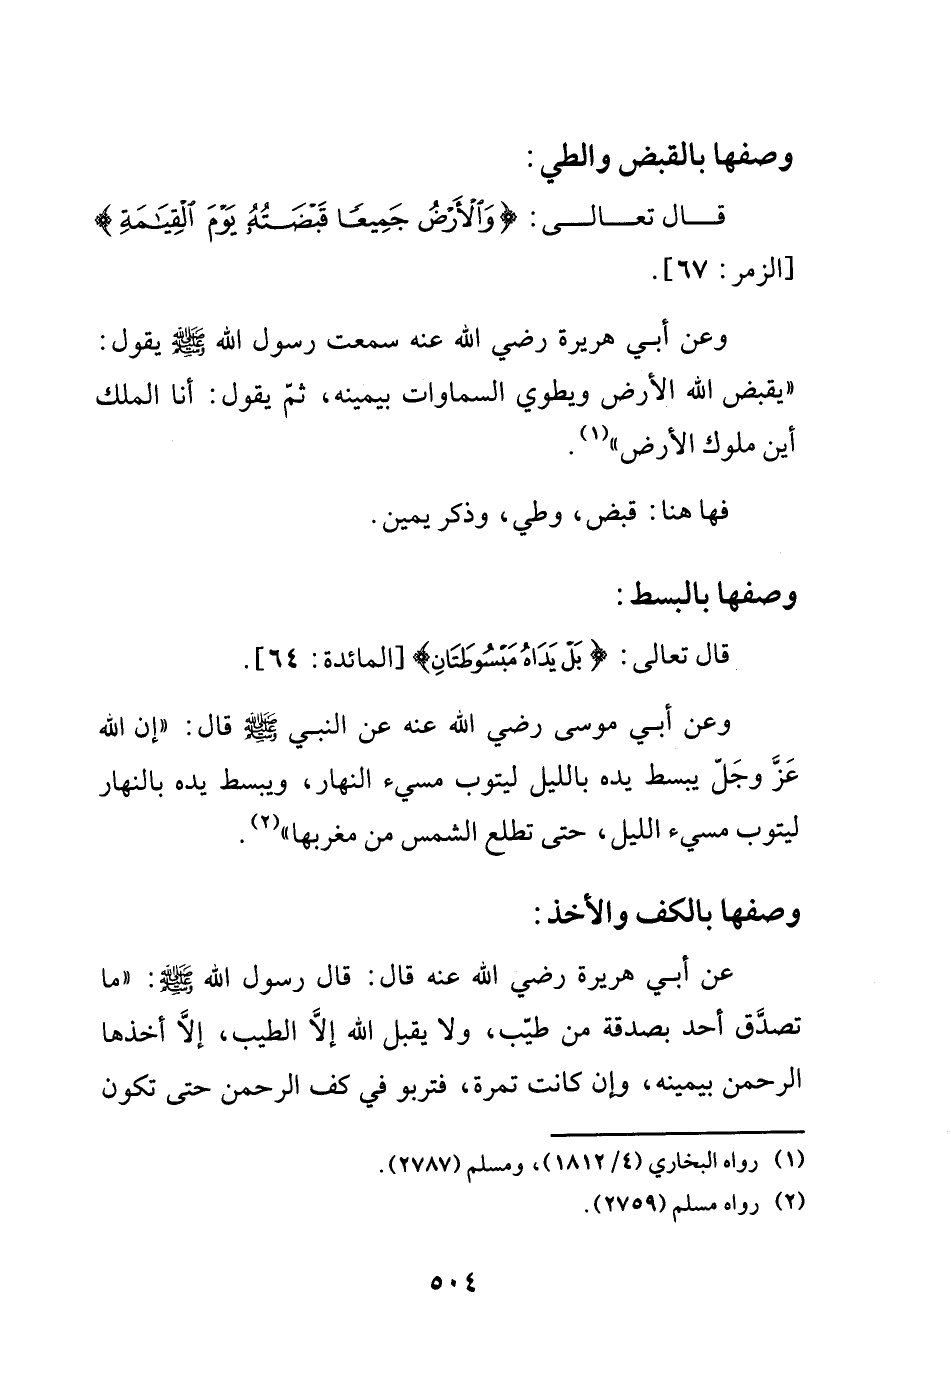 وصفها بالقبض والطي :
قـــال تعـــالـــى : ﴿ وَٱلْأَرْضُ جَمِيعًا قَبْضَتُهُۥ يَوْمَ ٱلْقِيَٰمَةِ ﴾
[الزمر : ٦٧] .
وعن أبـي هريرة رضي الله عنه سمعت رسول الله ﷺ يقول :
«يقبض الله الأرض ويطوي السماوات بيمينه، ثمّ يقول : أنا الملك
أين ملوك الأرض»(١) .
فها هنا : قبض، وطي، وذكر يمين .
وصفها بالبسط :
قال تعالى : ﴿ بَلْ يَدَاهُ مَبْسُوطَتَانِ﴾ [المائدة : ٦٤] .
وعن أبـي موسى رضي الله عنه عن النبـي ﷺ قال : «إن الله
عَزَّ وجَلّ يبسط يده بالليل ليتوب مسيء النهار، ويبسط يده بالنهار
ليتوب مسيء الليل، حتى تطلع الشمس من مغربها»(٢) .
وصفها بالكف والأخذ :
عن أبـي هريرة رضي الله عنه قال : قال رسول الله ﷺ : «ما
تصدَّق أحد بصدقة من طيّب، ولا يقبل الله إلَّا الطيب، إلَّا أخذها
الرحمن بيمينه، وإن كانت تمرة، فتربو في كف الرحمن حتى تكون
(١) رواه البخاري (٤/ ١٨١٢)، ومسلم (٢٧٨٧) .
(٢) رواه مسلم (٢٧٥٩) .
٥٠٤